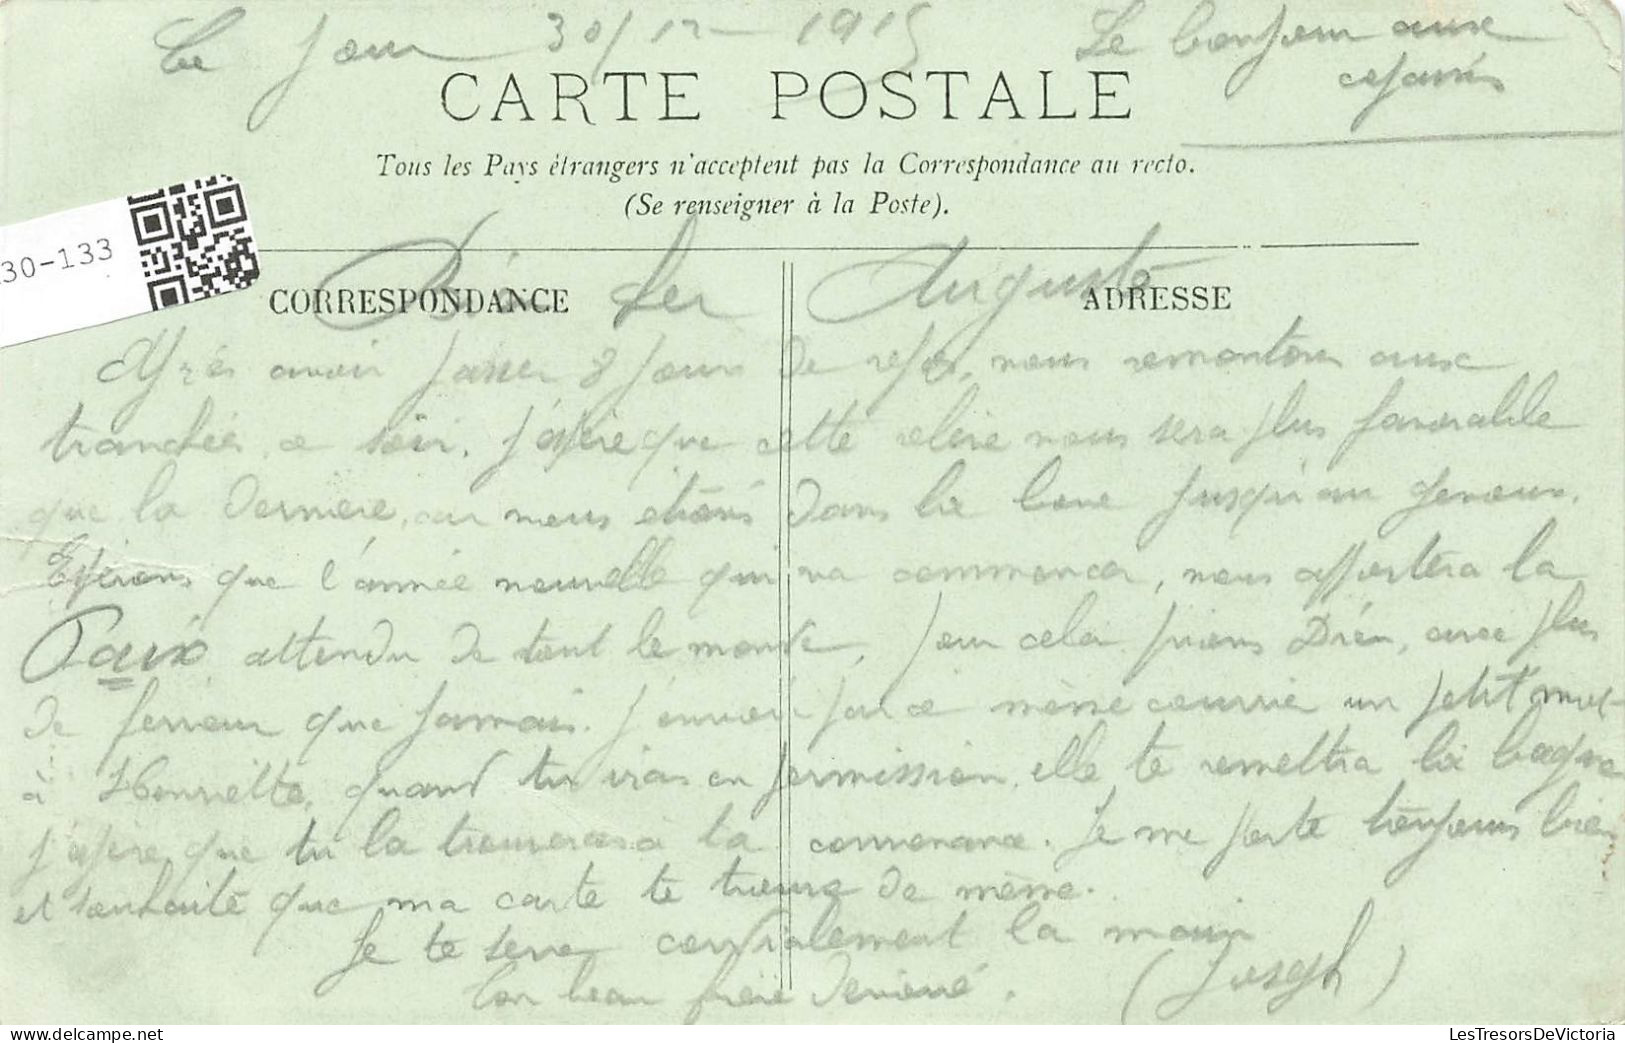 Le Jour 30/12-1915
Le bonjour aux
CARTE POSTALE
Tous les Pays étrangers n'acceptent pas la Correspondance au recto.
(Se renseigner à la Poste).
30-133
Auguste
CORRESPONDANCE
ADRESSE
Après avoir passer 8 jours de repos, nous remontons aux
tranchées ce soir. J'espère que cette relève nous sera plus favorable
que la dernière, car nous étions dans la boue jusqu'au genoux.
Espérons que l'année nouvelle qui va commencer, nous apportera la
Paix attendu de tout le monde, pour cela prions Dieu, avec plus
de ferveur que jamais. J'envoi par ce même courrie un petit mot
à Henriette, quand tu iras en permission, elle te remettra la bague
j'espère que tu la trouveras à ta convenance. Je me porte toujours bien
et souhaite que ma carte te trouve de même.
Je te serre cordialement la main
Ton beau frère dévoué. (Joseph)
LesTresorsDeVictoria.com